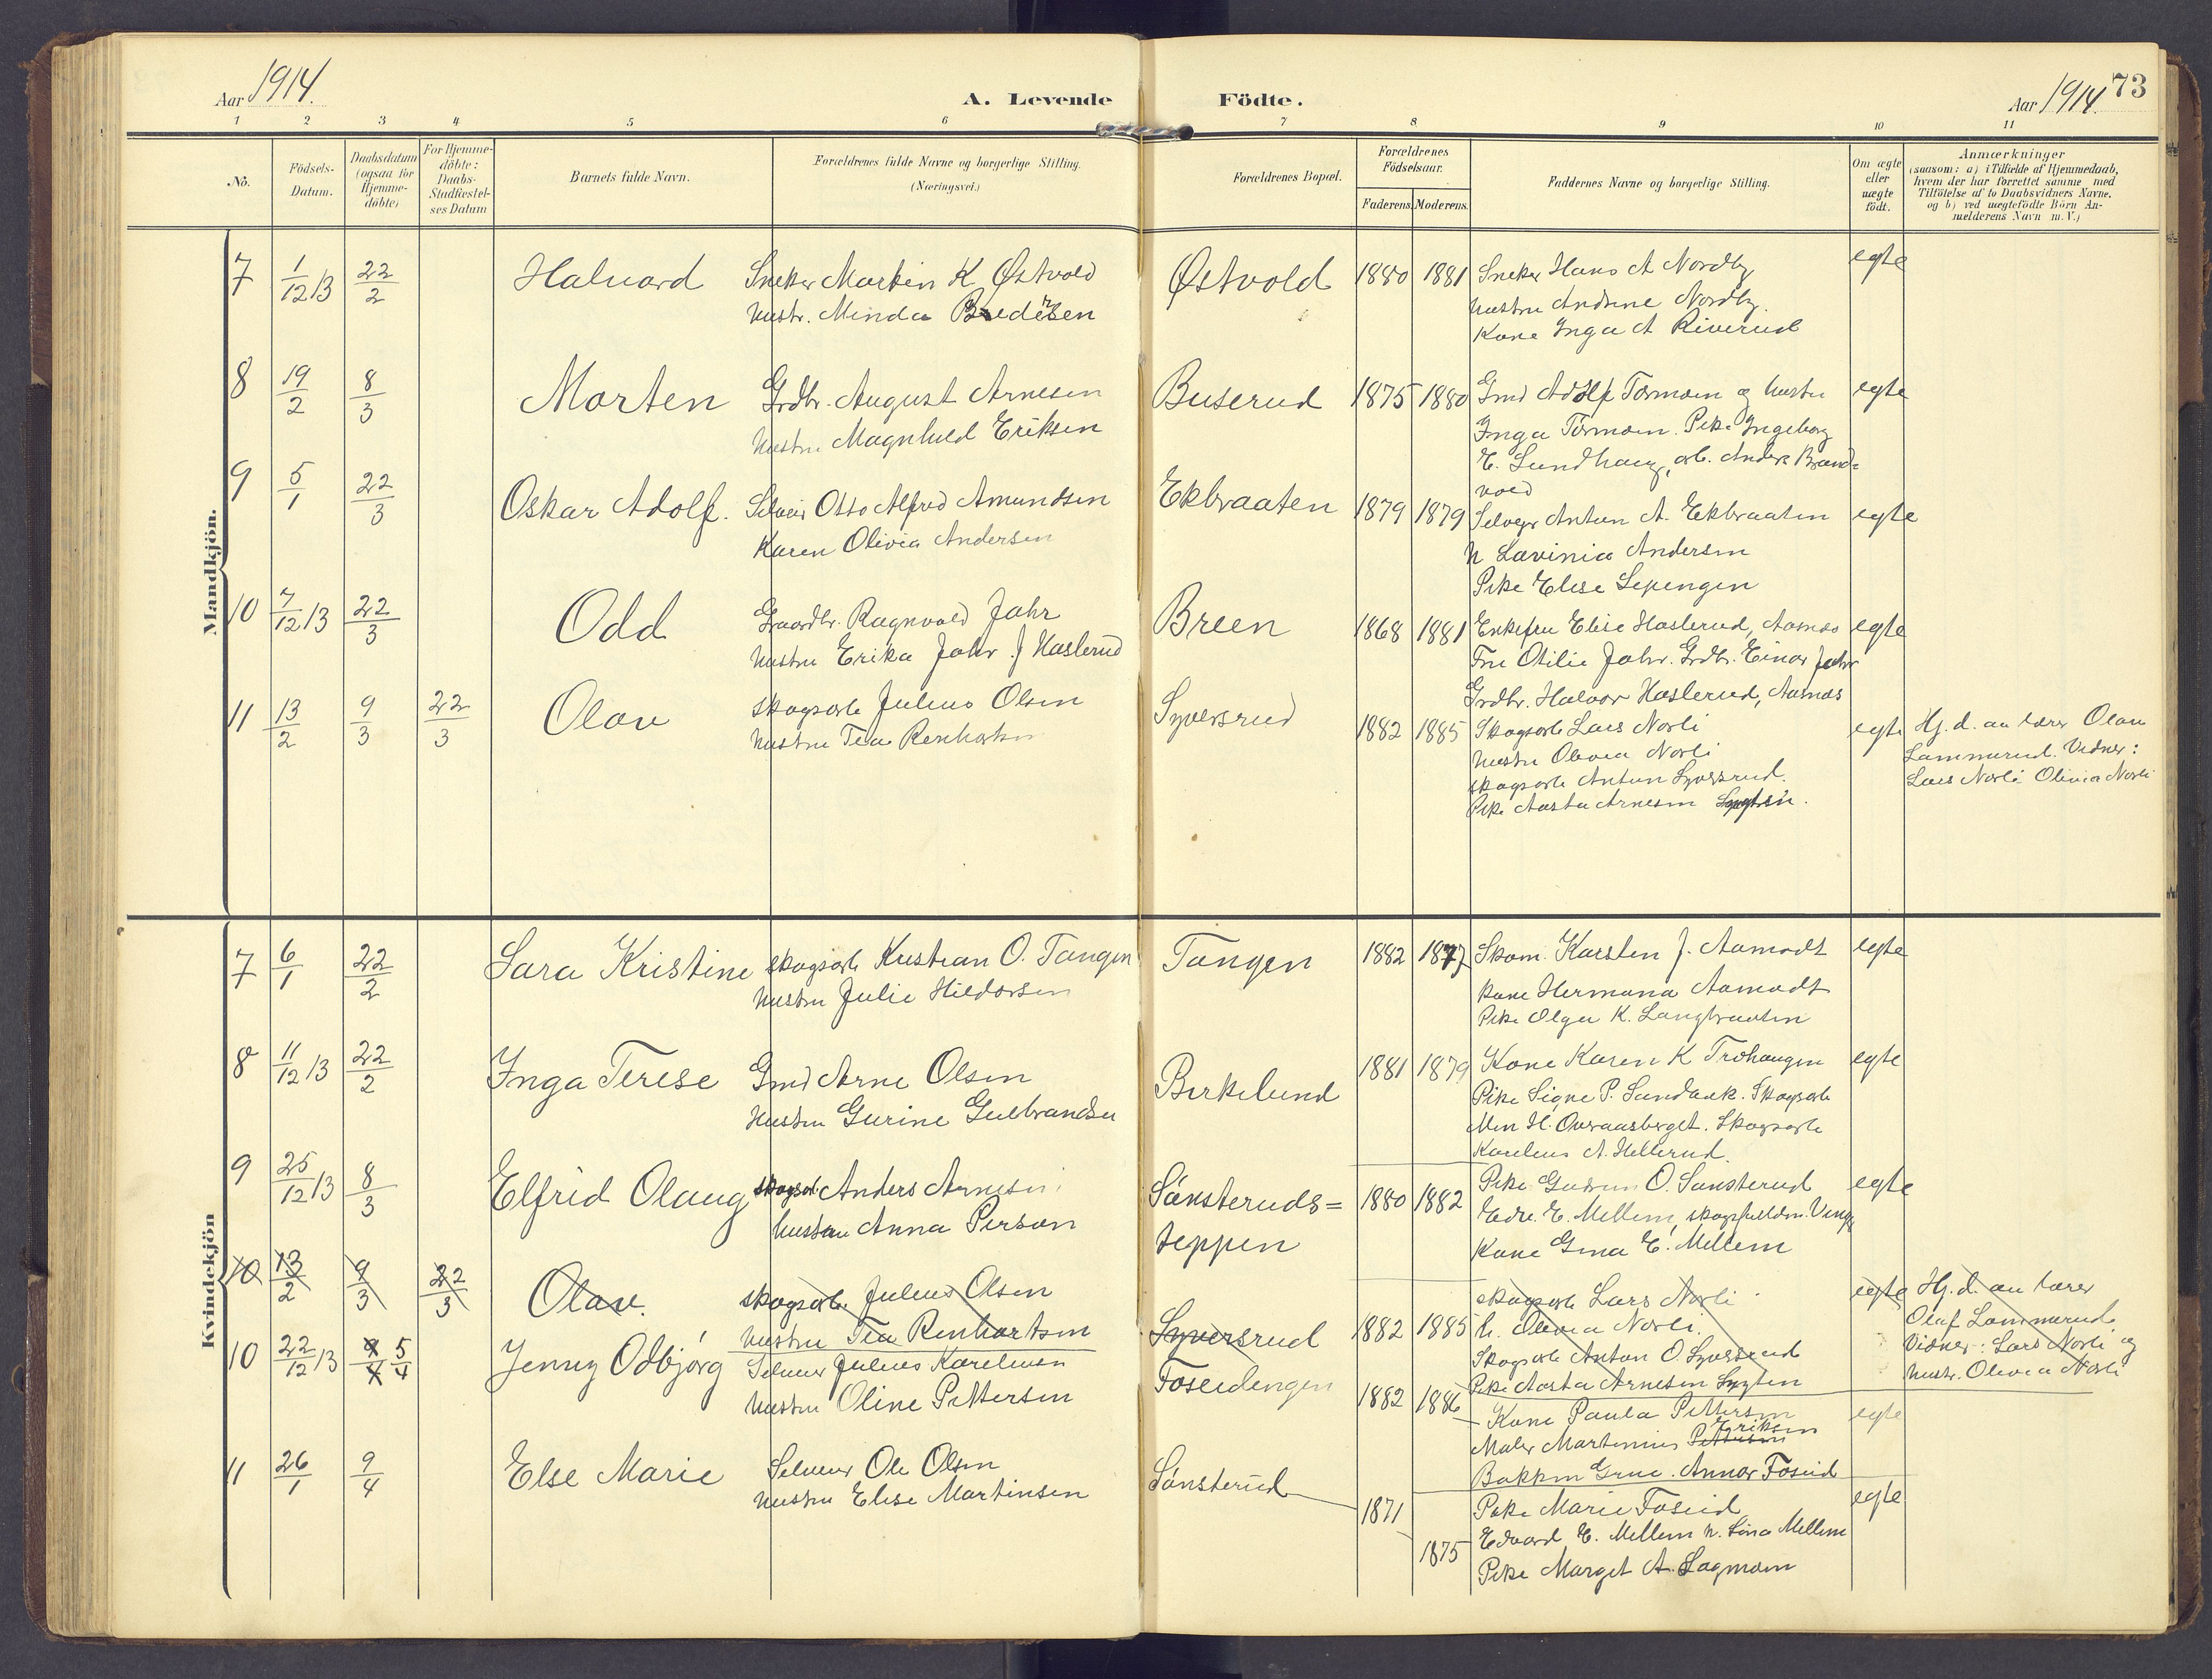 Aar 1914.
A. Levende Födte.
Aar 1914. 73
1 2 3 4 5 6 7 8 9 10 11
No.
Födsels-
Datum.
Daabsdatum
(ogsaa for
Hjemme-
döbte)
For Hjemme-
döbte:
Daabs-
Stadfæstel-
ses Datum
Barnets fulde Navn.
Forældrenes fulde Navne og borgerlige Stilling.
(Næringsvei.)
Forældrenes Bopæl.
Forældrenes
Födselsaar.
Faderens. Moderens.
Faddernes Navne og borgerlige Stilling.
Om ægte
eller
uægte
födt.
Anmærkninger
(saasom: a) i Tilfælde af Hjemmedaab,
hvem der har forrettet samme med
Tilföielse af to Daabsvidners Navne,
og b) ved uægtefödte Börn An-
melderens Navn m. V.)
Mandkjön.
7 1/12 13 22/2 Halvard Sneker Martin K. Østvold Østvold 1880 1881 Sneker Hans A Nordby egte
Hustr. Minda Bredesen
Hustru Andrine Nordby.
Kone Inga A Riverud
8 19/2 8/3 Morten Grdbr. August Arnesen Buserud 1875 1880 Gmd Adolf Tormoen og hustru egte
Hustru Magnhild Eriksen
Inga Tormoen. Pike Ingeborg
E. Sundhaug, arb. Anders Brand-
vold
9 5/1 22/3 Oskar Adolf. Selveier Otto Alfred Amundsen Ekbraaten 1879 1879 Selveier Anton A. Ekbraaten egte
Karen Olivia Andersen
h Lavinia Andersen
Pike Elise Sepengen
10 7/12 13 22/3 Odd Gaardbr. Ragnvald Jahr Breen 1868 1881 Enkefru Elise Haslerud, Aasnes egte
Hustru Erika Jahr f Haslerud
Fru Otilie Jahr. Grdbr. Einar Jahr
Grdbr. Halvor Haslerud, Aasnes
11 13/2 9/3 22/3 Olav skogsarb Julius Olsen Syversrud 1882 1885 Skogsarb Lars Norli egte Hj. d. av lærer Olav
Hustru Tea Renhartsen
Hustru Olivia Norli
Lammerud. Vidner:
skogsarb Anton Syversrud.
Lars Norli Olivia Norli
Pike Aasta Arnesen
Kvindekjön
7 6/1 22/2 Sara Kristine skogsarb Kristian O. Tangen Tangen 1882 1877 Skom. Karsten J. Aamodt egte
Hustru Julie Hildorsen
kone Hermana Aamodt
Pike Olga K. Langbraaten
8 11/12 13 22/2 Inga Terese Gmd Arne Olsen Birkelund 1881 1879 Kone Karen K Trohaugen egte
Hustru Gurine Gulbrandsen
Pike Signe P. Sundbæk. Skogsarb
H. Overaasberget. Skogsarb
Karelius A. Hellerud.
9 25/12 13 8/3 Elfrid Olaug skogsarb Anders Arnesen Sönsteruds= 1880 1882 Pike Gudrun O. Sønsterud egte
Hustru Anna Person teppen
E. Mellem, skogsfuldm. Vinger
Kone Gina E. Mellem
10 13/2 9/3 22/3 Olav. skogsarb. Julius Olsen Syversrud 1882 1885 skogsarb Lars Norli egte Hj. d. av lærer
Hustru Tea Renhartsen
h. Olivia Norli.
Olaf Lammerud
Skogsarb Anton O. Syversrud
Vidner: Lars Norli og
Pike Aasta Arnesen
Hustr. Olivia Norli
10 22/12 13 5/4 Jenny Odbjörg Selveier Julius Kareliusen Foseidengen 1882 1886 Kone Paula Pettersen egte
Hustru Oline Pettersen
Maler Martinius Pettersen Eriksen
Bakken Grue. Annar Foseid
11 26/1 9/4 Else Marie Selveier Ole Olsen Sönsterud 1871 1875 Pike Marie Foseid egte
Hustru Elise Martinsen
Edvard E. Mellem h. Gina Mellem
Pike Margit A. Lagmoen